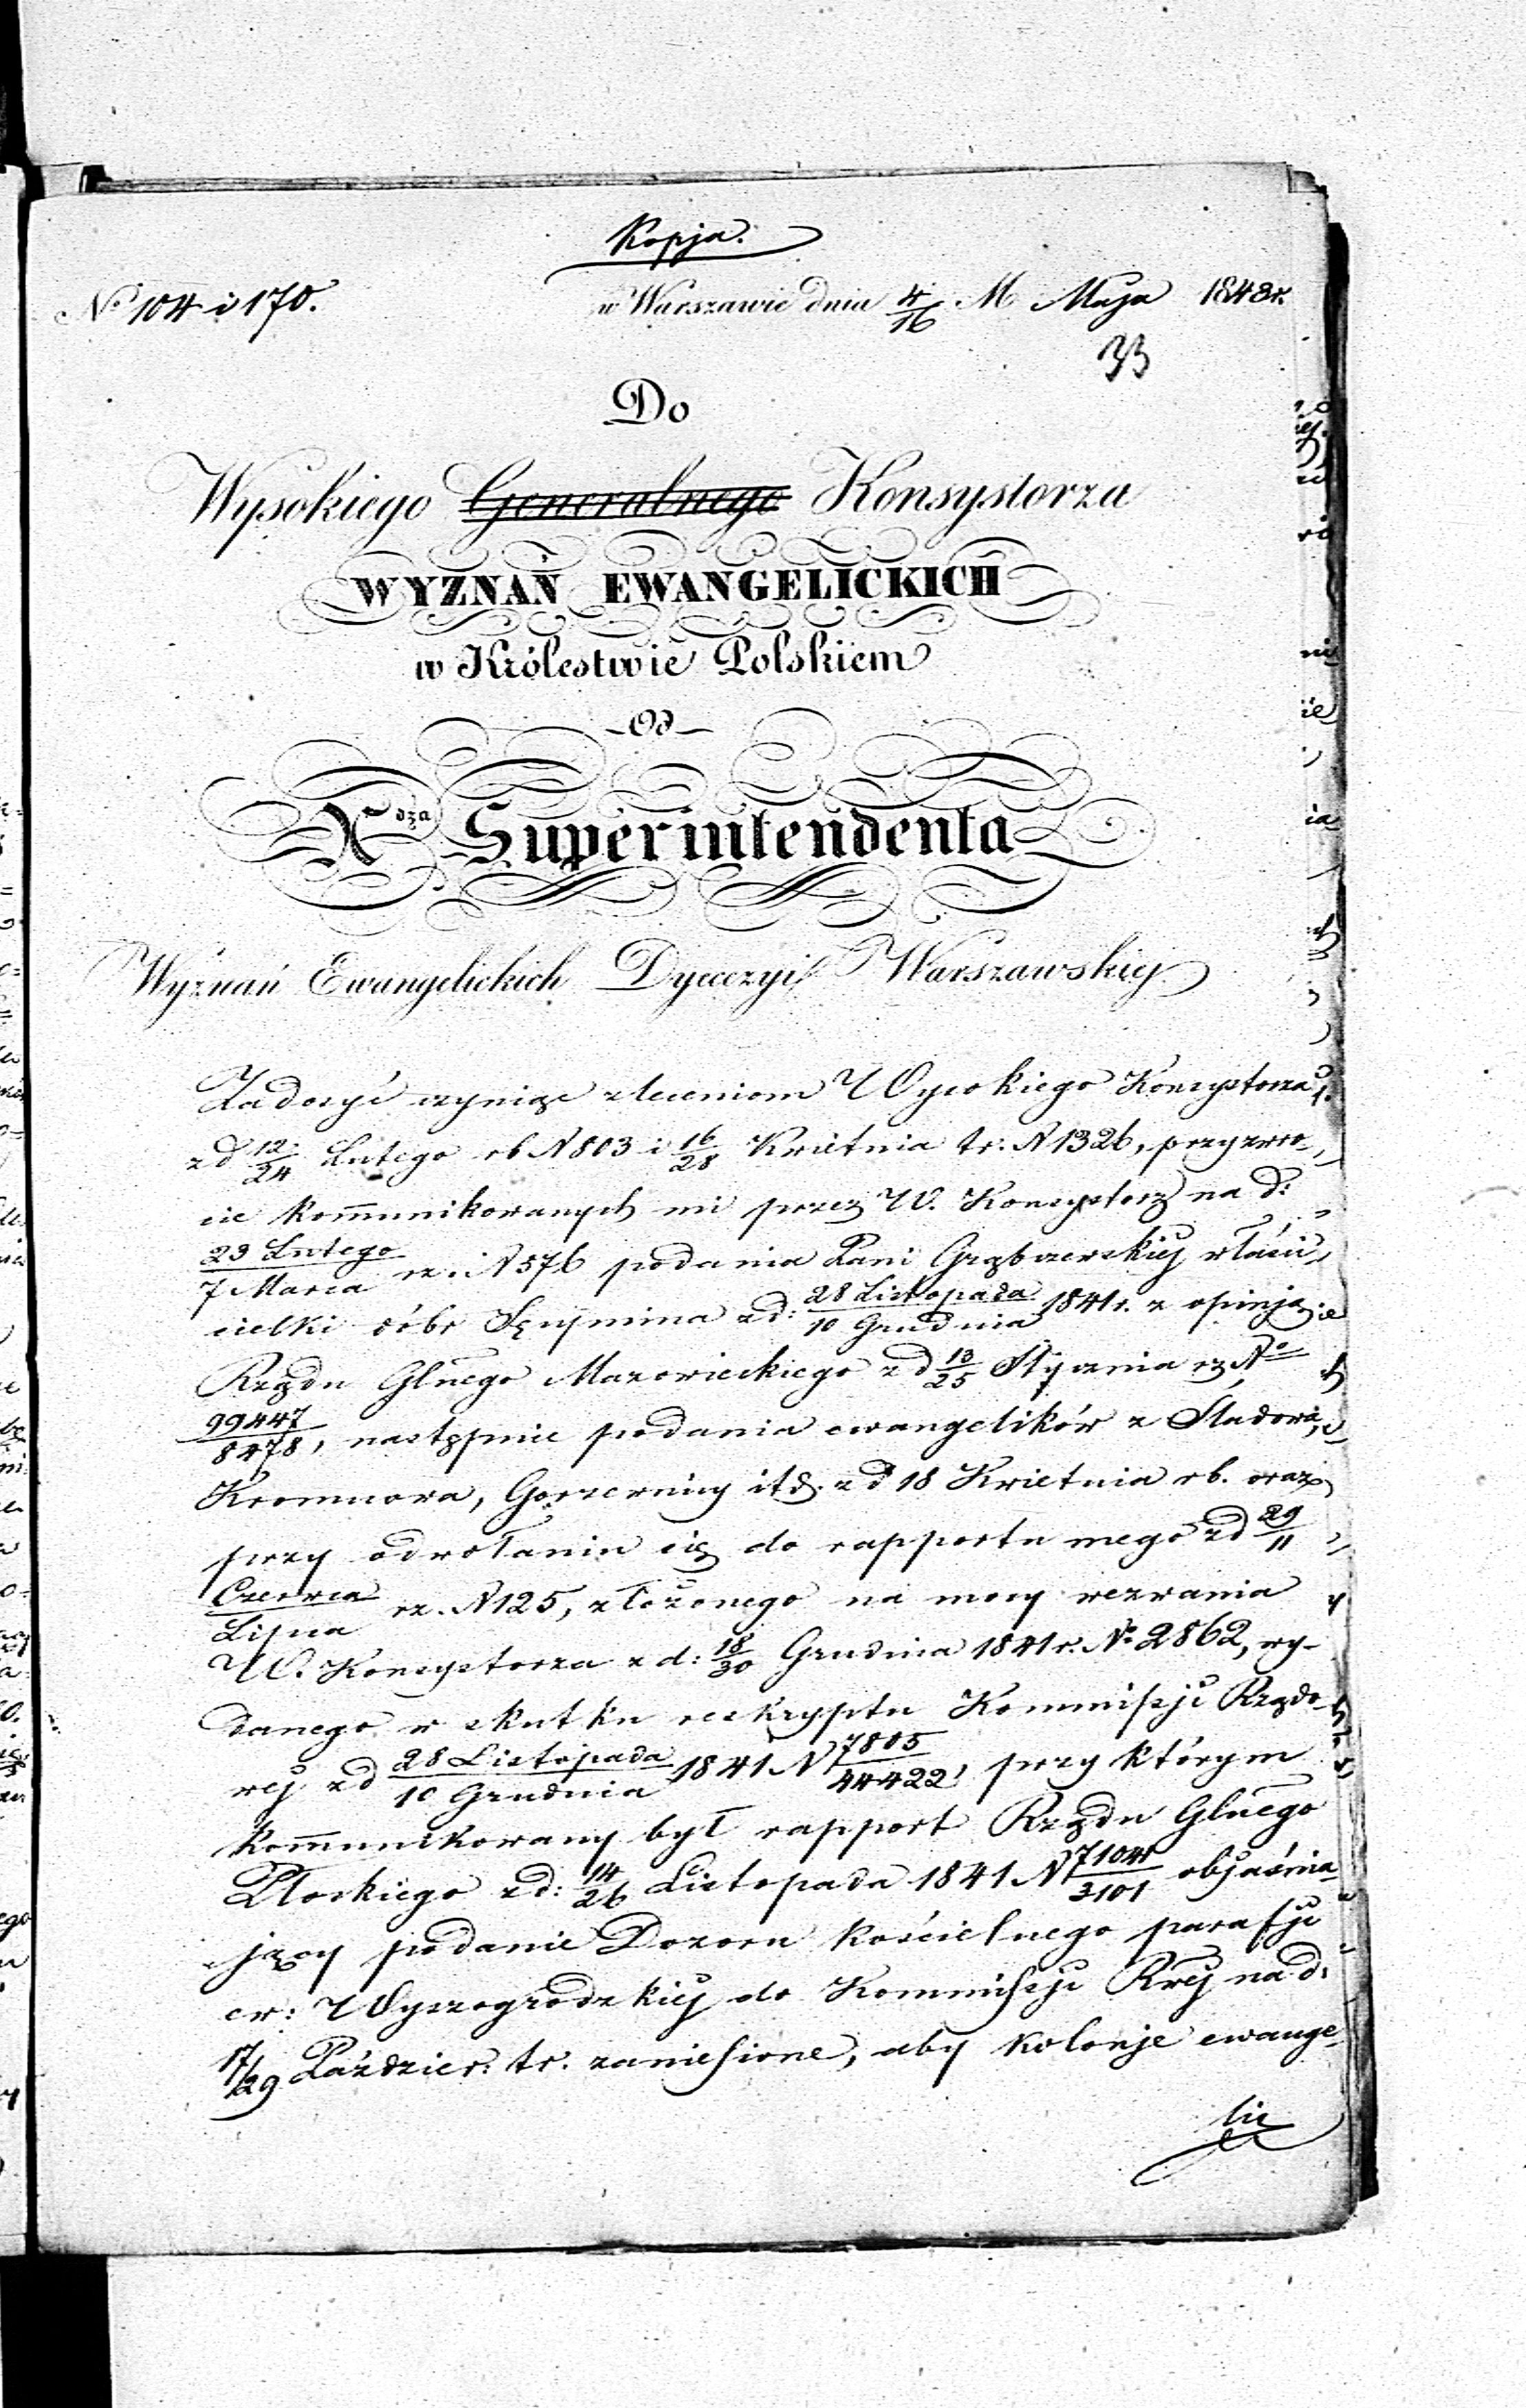 Kopja.
№ 104 i 170.
w Warszawie dnia 4/16 M Maja 1843r.
33
Do
Wysokiego Generalnego Konsystorza
WYZNAŃ EWANGELICKICH
w Królestwie Polskiem
-Od-
Xdza Superintendenta
Wyznań Ewangelickich Dyecezyi Warszawskiej
Zadosyć czyniąc zleceniom Wysokiego Konsystorza
zd 12/24 Lutego rb N 803 i 16/28 Kwietnia tr: N 1326, przy zwro-
cie kommunikowanych mi przez W. Konsystorz na d:
23 Lutego/7 Marca rz. N 576 podania Pani Grąbczewskiej właści-
cielki dóbr zd: 28 Listopada/10 Grudnia 1841r. z opinją
Rządu Glnego Mazowieckiego zd 13/25 Stycznia rz No
99447/8478, następnie podania ewangelików z Śladowa,
Kromnowa, Gorzewnicy itd. zd 18 Kwietnia rb. oraz
przy odwołaniu się do rapportu mego zd 29/11
Czerwca/Lipca rz. N 125, złożonego na mocy wezwania
W. Konsystorza zd: 18/30 Grudnia 1841r. № 2862, wy-
danego w skutku reskryptu Kommissji Rządo-
wej zd 28 Listopada/10 Grudnia 1841 N 7805/44422, przy którym
kommunikowany był rapport Rządu Glnego
Płockiego zd: 14/26 Listopada 1841 N 71041/3101 objaśnia-
jący podanie Dozoru kościelnego parafji
ew: Wyszogrodzkiej do Kommissji Rwej na d:
17/29 Paździer: tr. zaniesione, aby kolonje ewange-
lic